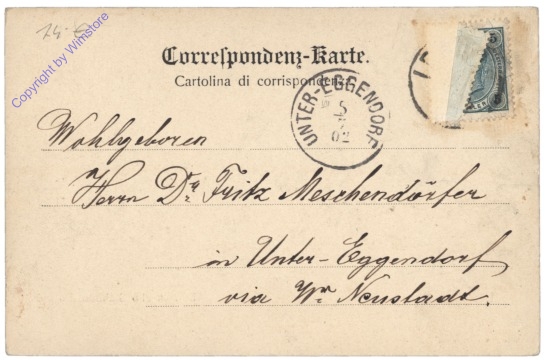 Copyright by Winstore
Correspondenz-Karte.
Cartolina di corrispondenza.
UNTER-EGGENDORF
5
02
5
Wohlgeboren
Herrn Dr. Fritz Meschendörfer
in Unter-Eggendorf
via Wr. Neustadt.